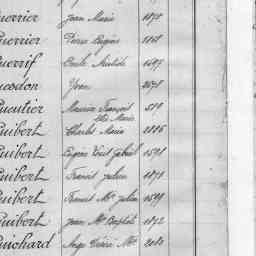 Guerrier Jean Marie 1878
Guerrier Pierre Eugène 1868
Guerrif Emile Aristide 1697
Guesdon Yves 2678
Gueutier Maurice François 519
Marie
Guibert Charles Marie 2886
Guibert Eugène Gabriel 1591
Guibert Francis Julien 1871
Guibert Francis Me Julien 1599
Guibert Jean Me Baptiste 1872
Guichard Ange Désiré Me 2080